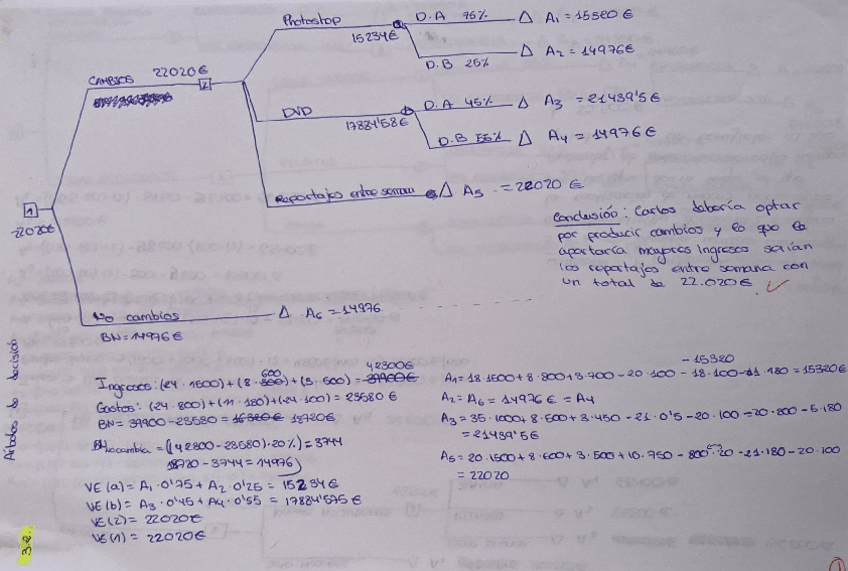 Photostop
15234€
D.A 75% △ A₁ = 15320€
D.B 25% △ A₂ = 14976€
CAMBIOS 22020€
2
DVD
17884'58€
D.A 45% △ A₃ = 21439'5€
D.B 55% △ A₄ = 14976€
Reportajes entre semana △ A₅ = 22020€
1
22020€
Conclusión: Carlos debería optar
por producir cambios y lo que le
aportaría mayores ingresos serían
los reportajes entre semana con
un total de 22.020€. ✓
No cambios △ A₆ = 14976
BN = 14976€
Árboles de decisión
3.2.
Ingresos: (24·1500)+(8·600)+(3·500) = 42300€
Gastos: (24·800)+(11·180)+(24·100) = 23580€
BN = 39900-23580 = 18720€
BNocambia = (42300-23580)·20%) = 3744
18720-3744 = 14976
VE(a) = A₁·0'75 + A₂·0'25 = 15234€
VE(b) = A₃·0'45 + A₄·0'55 = 17884'575€
VE(2) = 22020€
VE(1) = 22020€
-15320
A₁ = 18·1500+8·800+3·700-20·100-18·100-21·180 = 15320€
A₂ = A₆ = 14976€ = A₄
A₃ = 35·1000+8·500+3·450-21·0'5-20·100-20·800-5·180
= 21439'5€
A₅ = 20·1500+8·600+3·500+10·750-800·20-21·180-20·100
= 22020